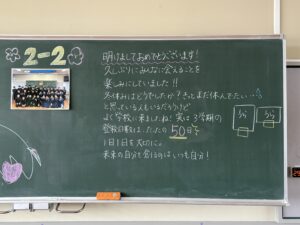 2-2
明けましておめでとうございます!
久しぶりにみんなに会えることを
楽しみにしていました!!
冬休みはどうでしたか?きっとまだ休んでたい…
と思っている人もいるだろうけど
よく学校に来ましたね!実は3学期の
登校日数は…たったの50日
1日1日を大切に。
未来の自分を創るのはいつも自分!
うら
うら